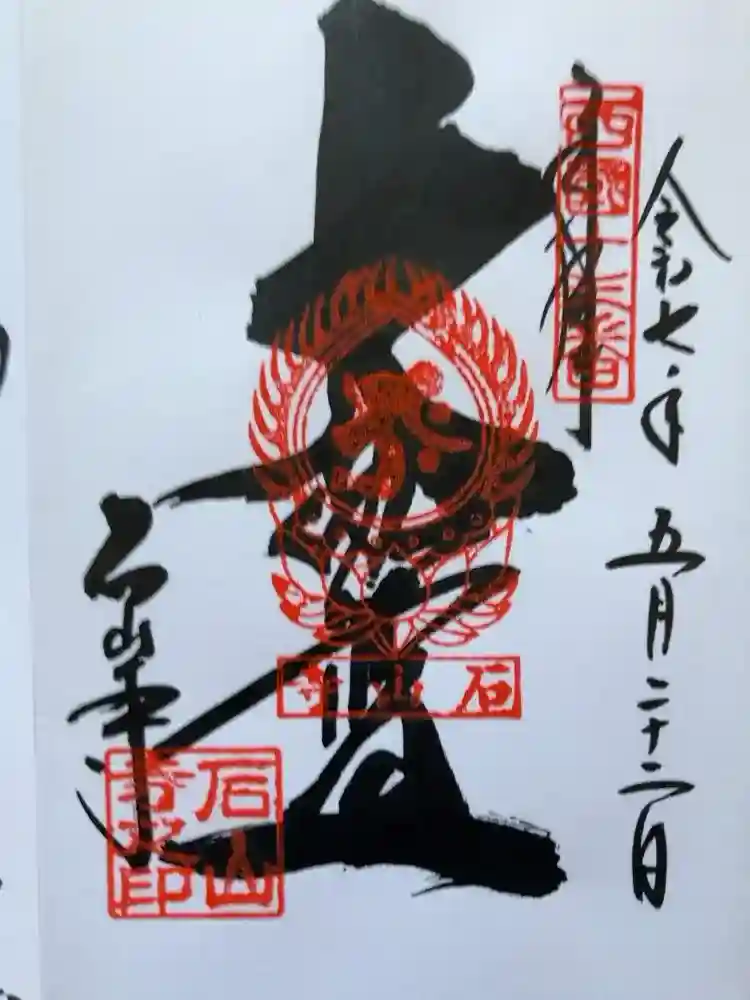 令和七年 五月二十二日
奉拝
西國十三番
石山寺
石山寺
石山寺之印